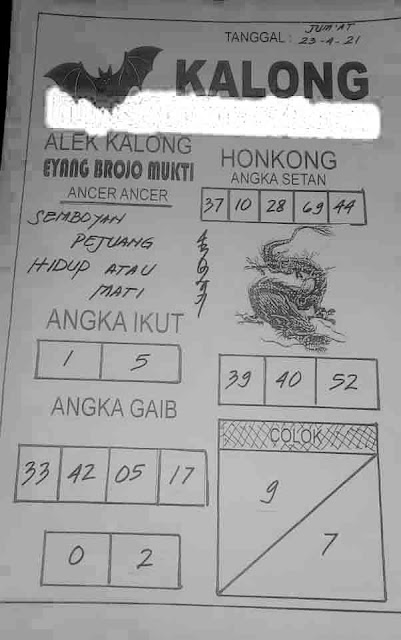 JUM'AT
TANGGAL : 23-4-21
KALONG
ALEK KALONG
EYANG BROJO MUKTI
ANCER ANCER
SEMBOYAN
PEJUANG
HIDUP ATAU
MATI
HONKONG
ANGKA SETAN
37 10 28 69 44
ANGKA IKUT
1 5
39 40 52
ANGKA GAIB
33 42 05 17
0 2
COLOK
9
7